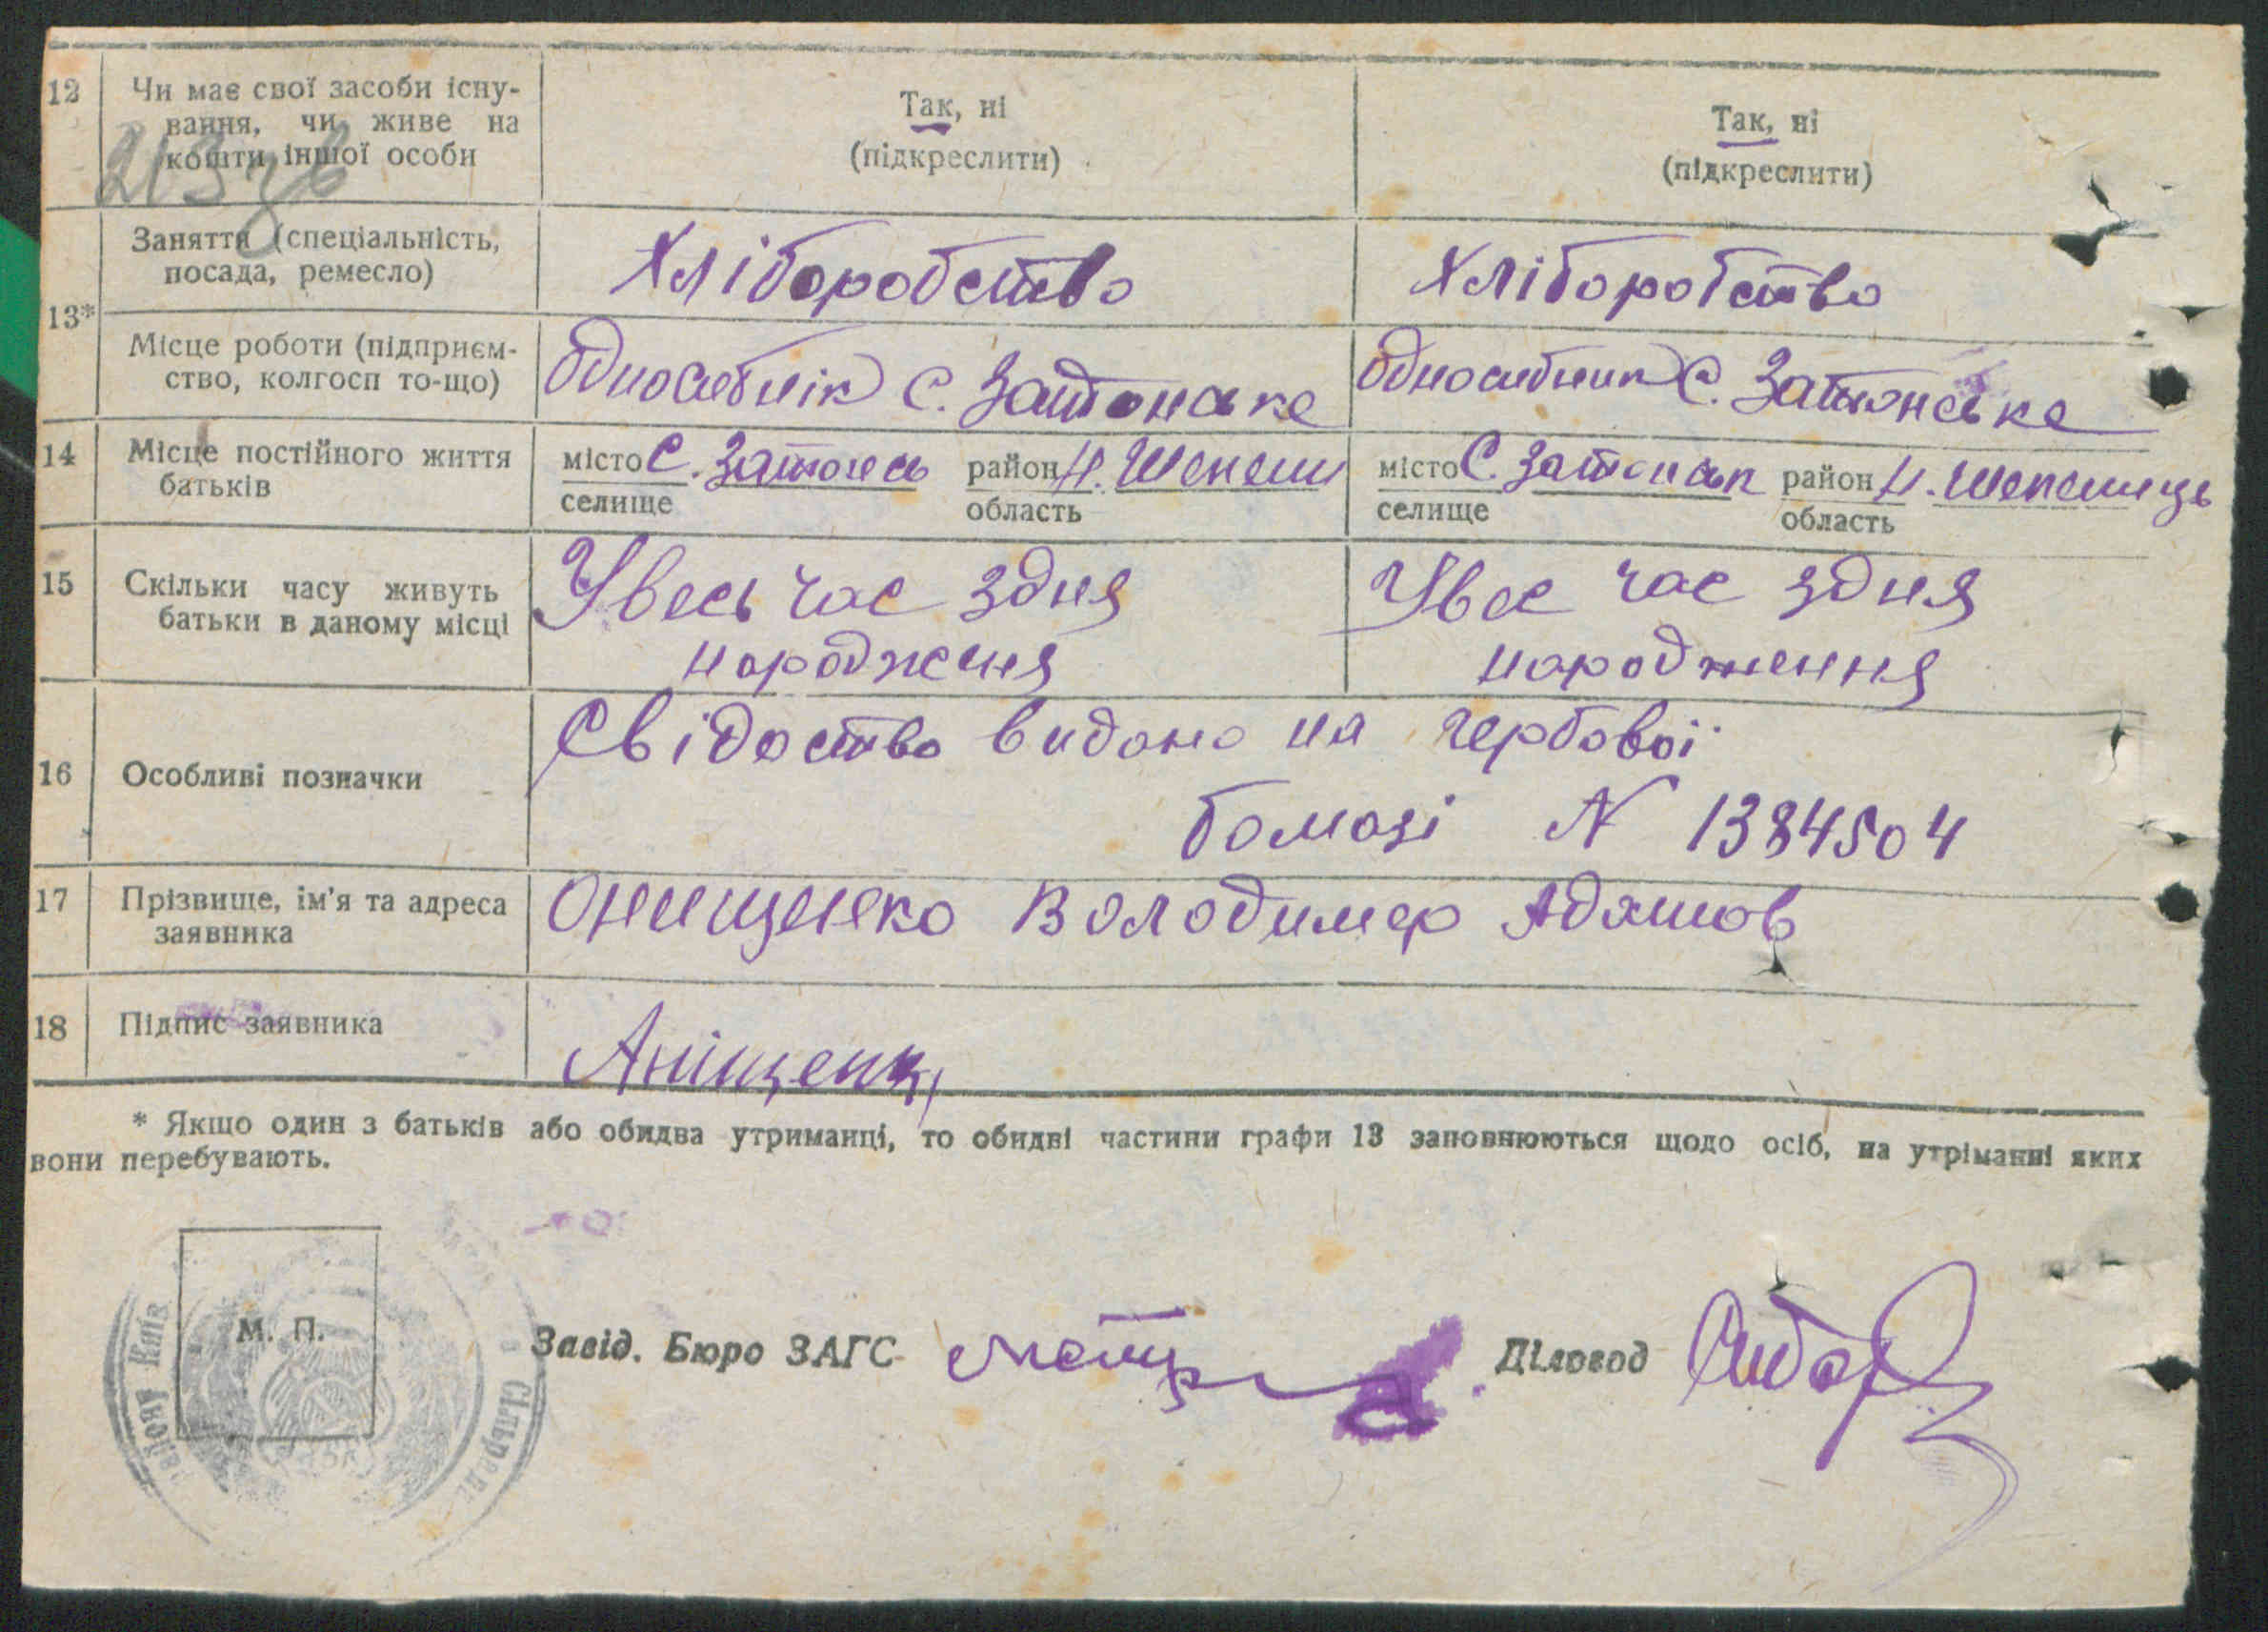 12 Чи має свої засоби існу-
вання, чи живе на
кошти іншої особи
Так, ні
(підкреслити)
Так, ні
(підкреслити)
13*
Заняття (спеціальність,
посада, ремесло)
Хліборобство
Хліборобство
Місце роботи (підприєм-
ство, колгосп то-що)
Односебнік С. Затонське
Односибник С. Затонське
14 Місце постійного життя
батьків
місто С. Затонсь район Н. Шепели
селище область
місто С. Затонськ район Н. Шепелиць
селище область
15 Скільки часу живуть
батьки в даному місці
Увесь час здня
народженя
Увес час здня
народження
16 Особливі позначки
Свідоство видано на гербової
бомазі N 1384504
17 Прізвище, ім'я та адреса
заявника
Онищенко Володимер Адамов
18 Підпис заявника
Аніщенк
* Якщо один з батьків або обидва утриманці, то обидві частини графи 13 заповнюються щодо осіб, на утріманні яких
вони перебувають.
М. П.
Завід. Бюро ЗАГС
Діловод Сидор